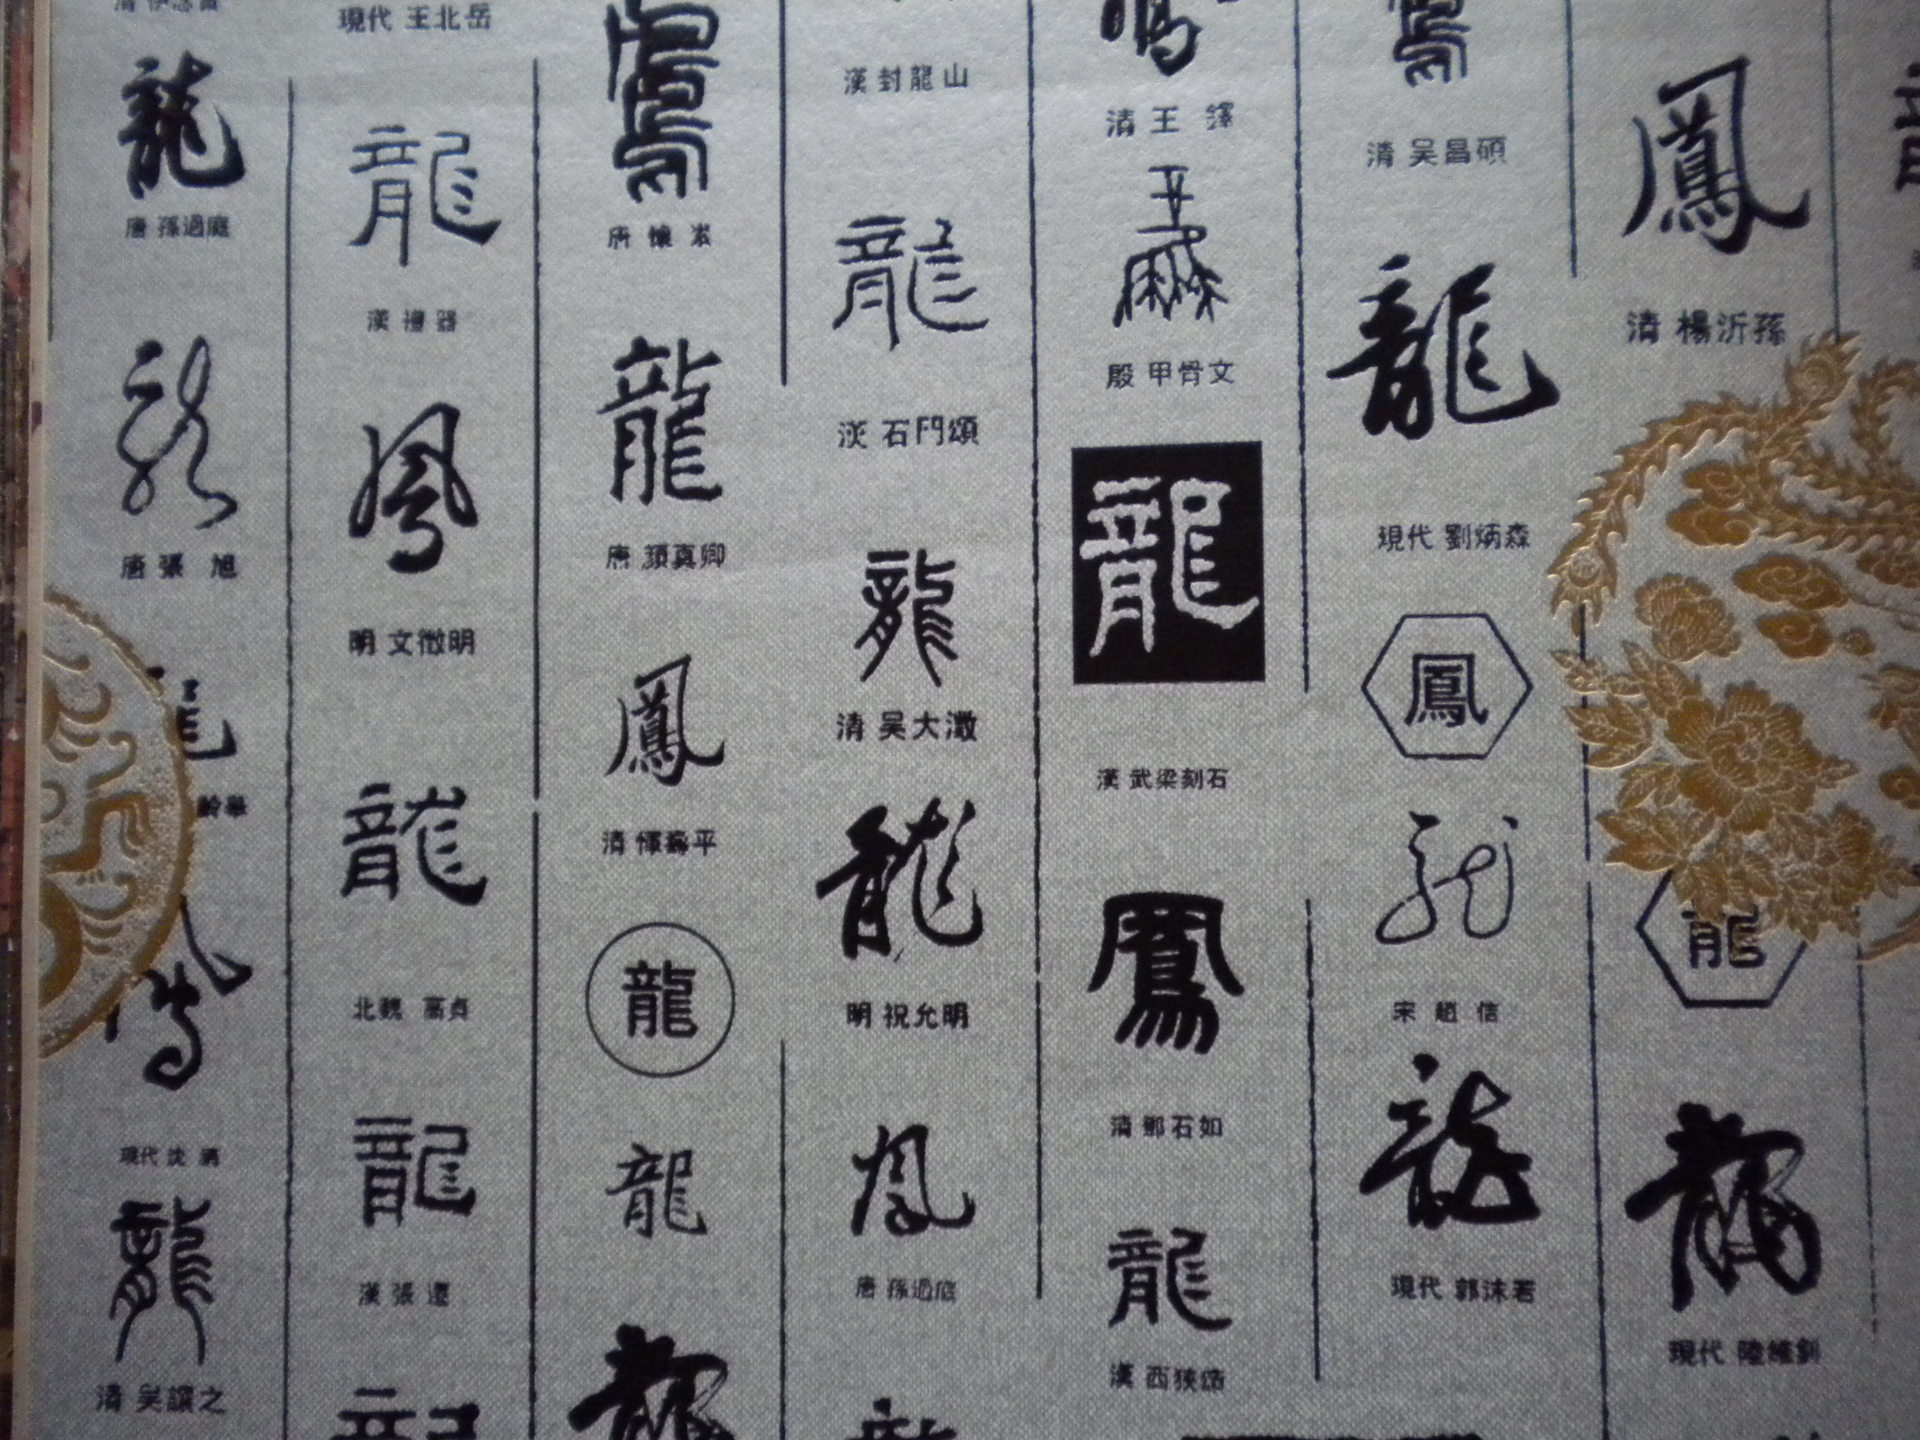 現代 王北岳
龍
唐 孫過庭
龍
唐 張 旭
現代 沈 鵬
龍
清 吴讓之
龍
漢 禮 器
鳳
明 文徵明
龍
北魏 高貞
龍
漢 張 遷
龍
唐 懷 素
龍
唐 顔真卿
鳳
清 惲壽平
龍
龍
龍
漢 封龍山
龍
漢 石門頌
龍
清 吴大澂
龍
明 祝允明
鳳
唐 孫過庭
清 王 鐸
殷 甲骨文
龍
漢 武梁刻石
鳳
清 鄧石如
龍
漢 西狹頌
清 吴昌碩
龍
現代 劉炳森
鳳
龍
宋 趙 佶
龍
現代 郭沫若
鳳
清 楊沂孫
龍
龍
現代 陸維釗